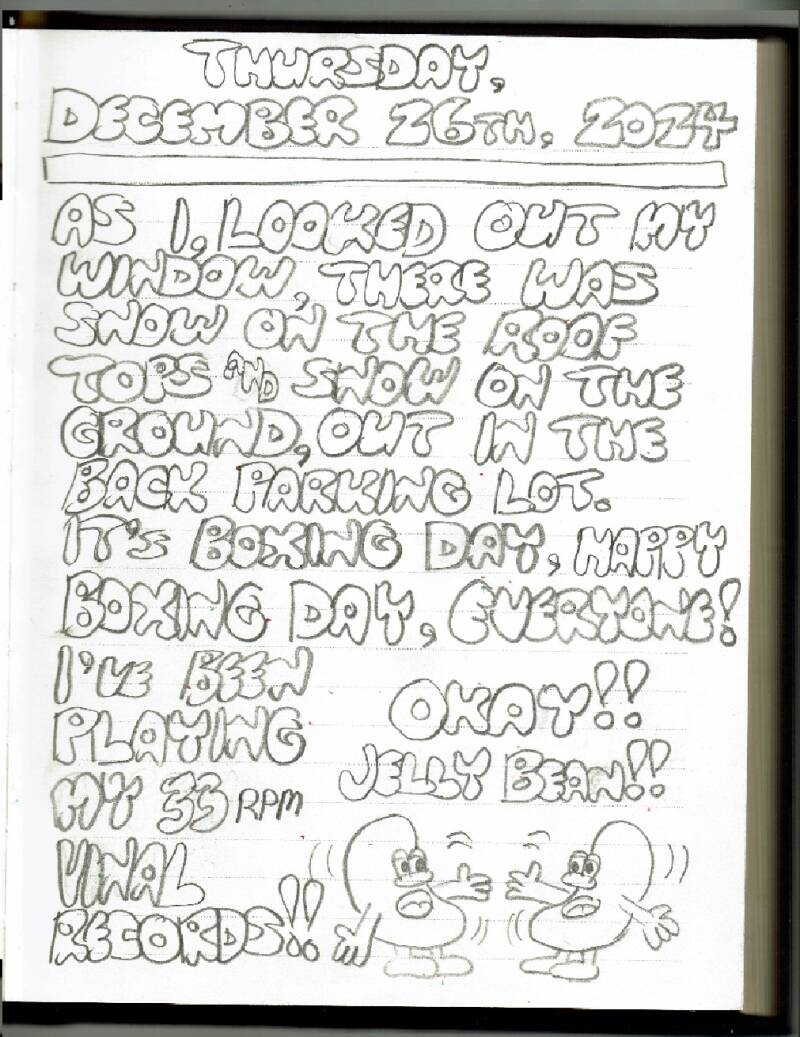 THURSDAY,
DECEMBER 26TH, 2024
AS I, LOOKED OUT MY
WINDOW, THERE WAS
SNOW ON THE ROOF
TOPS AND SNOW ON THE
GROUND, OUT IN THE
BACK PARKING LOT.
IT'S BOXING DAY, HAPPY
BOXING DAY, EVERYONE!
I'VE BEEN
PLAYING
MY 33 RPM
VINAL
RECORDS!!
OKAY!!
JELLY BEAN!!